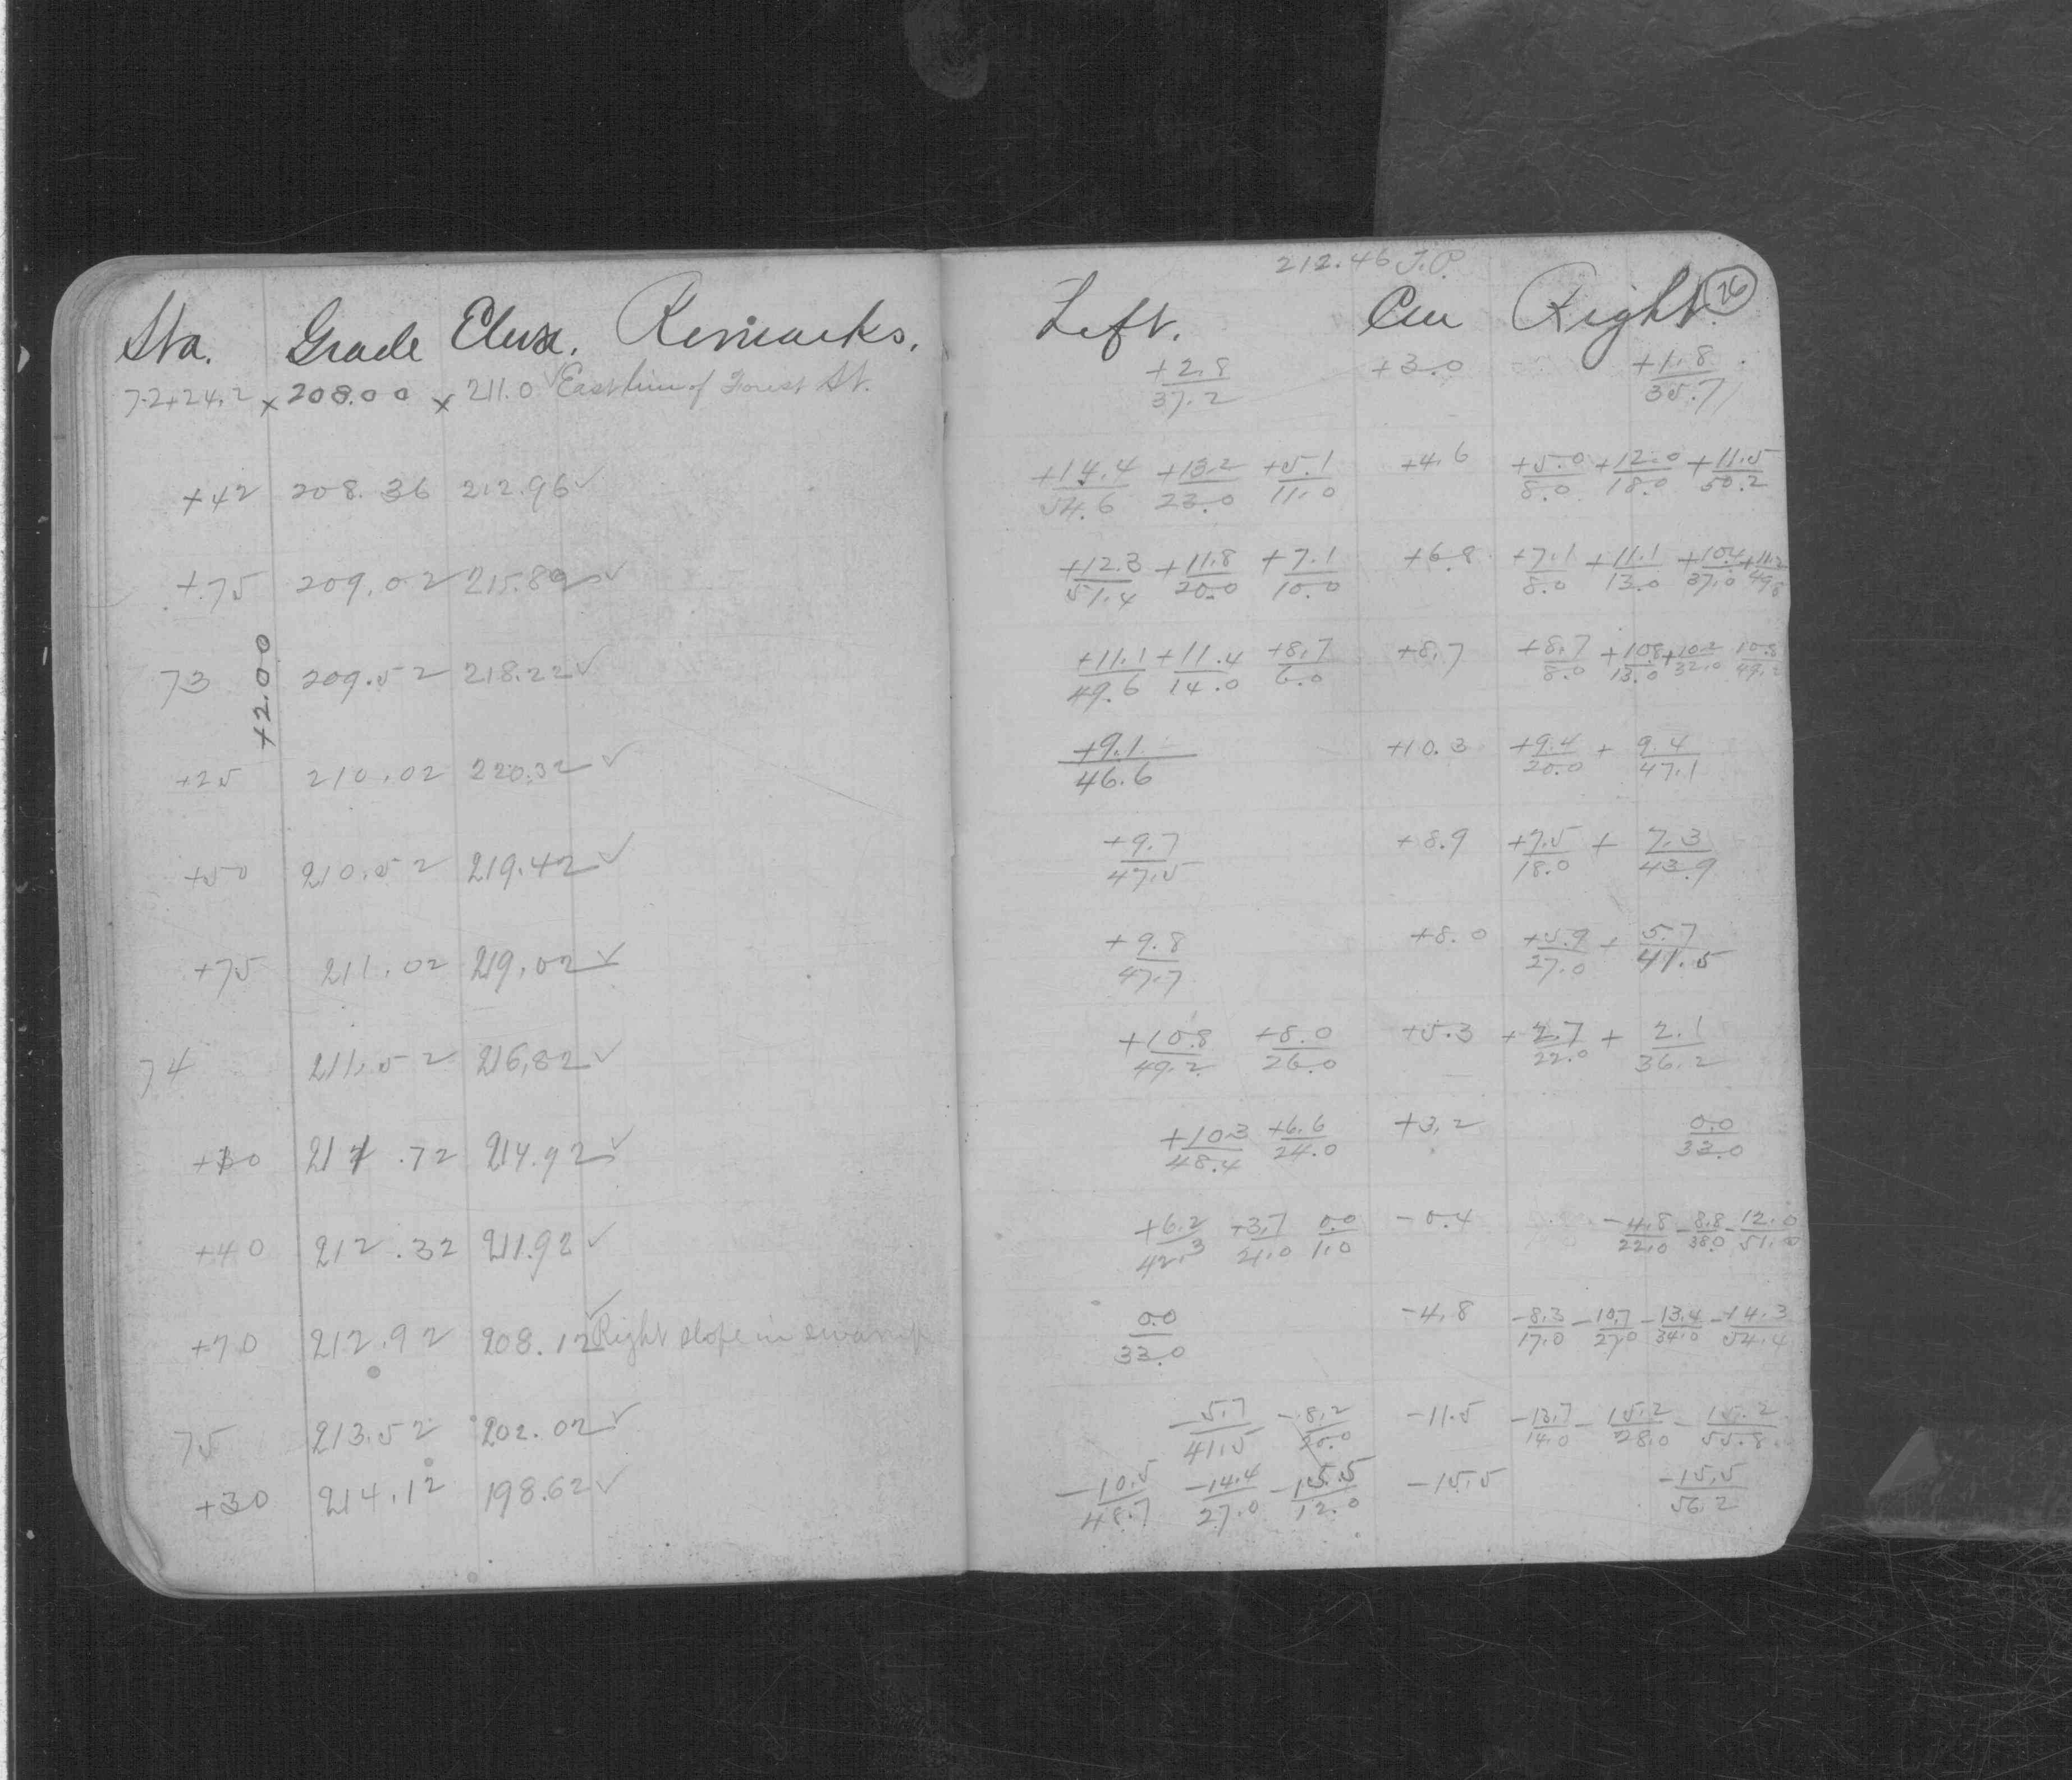 212.46 T.P.
Sta. Grade Elev. Remarks. Left. Cen Right. 26
72+24.2 x 208.00 x 211.0 ✓ East line of Forest St. +2.8/37.2 +3.0 +1.8/35.7
+42 208.36 212.96 ✓ +14.4/54.6 +13.2/23.0 +5.1/11.0 +4.6 +5.0/8.0 +12.0/18.0 +11.5/50.2
+75 209.02 215.82 ✓ +12.3/51.4 +11.8/20.0 +7.1/10.0 +6.8 +7.1/8.0 +11.1/13.0 +10.4/37.0
+2.00
73 209.52 218.22 ✓ +11.1/49.6 +11.4/14.0 +8.7/6.0 +8.7 +8.7/8.0 +10.8/13.0 +10.2/32.0 10.8/49.2
+25 210.02 220.32 ✓ +9.1/46.6 +10.3 +9.4/20.0 + 9.4/47.1
+50 210.52 219.42 ✓ +9.7/47.5 +8.9 +7.5/18.0 + 7.3/43.9
+75 211.02 219.02 ✓ +9.8/47.7 +8.0 +5.9/27.0 + 5.7/41.5
74 211.52 216.82 ✓ +10.8/49.2 +8.0/26.0 +5.3 +2.7/22.0 + 2.1/36.2
+10 211.72 214.92 ✓ +10.3/48.4 +6.6/24.0 +3.2 0.0/33.0
+40 212.32 211.92 ✓ +6.2/42.3 +3.7/21.0 0.0/1.0 -0.4 -4.8/22.0 -8.8/38.0 -12.0/51.0
+70 212.92 208.12 ✓ Right slope in swamp 0.0/33.0 -4.8 -8.3/17.0 -10.7/27.0 -13.4/34.0 -14.3/54.4
75 213.52 202.02 ✓ -5.7/41.5 -8.2/20.0 -11.5 -13.7/14.0 -15.2/28.0 -15.2/55.8
+30 214.12 198.62 ✓ -10.5/48.7 -14.4/27.0 -15.5/12.0 -15.5 -15.5/56.2